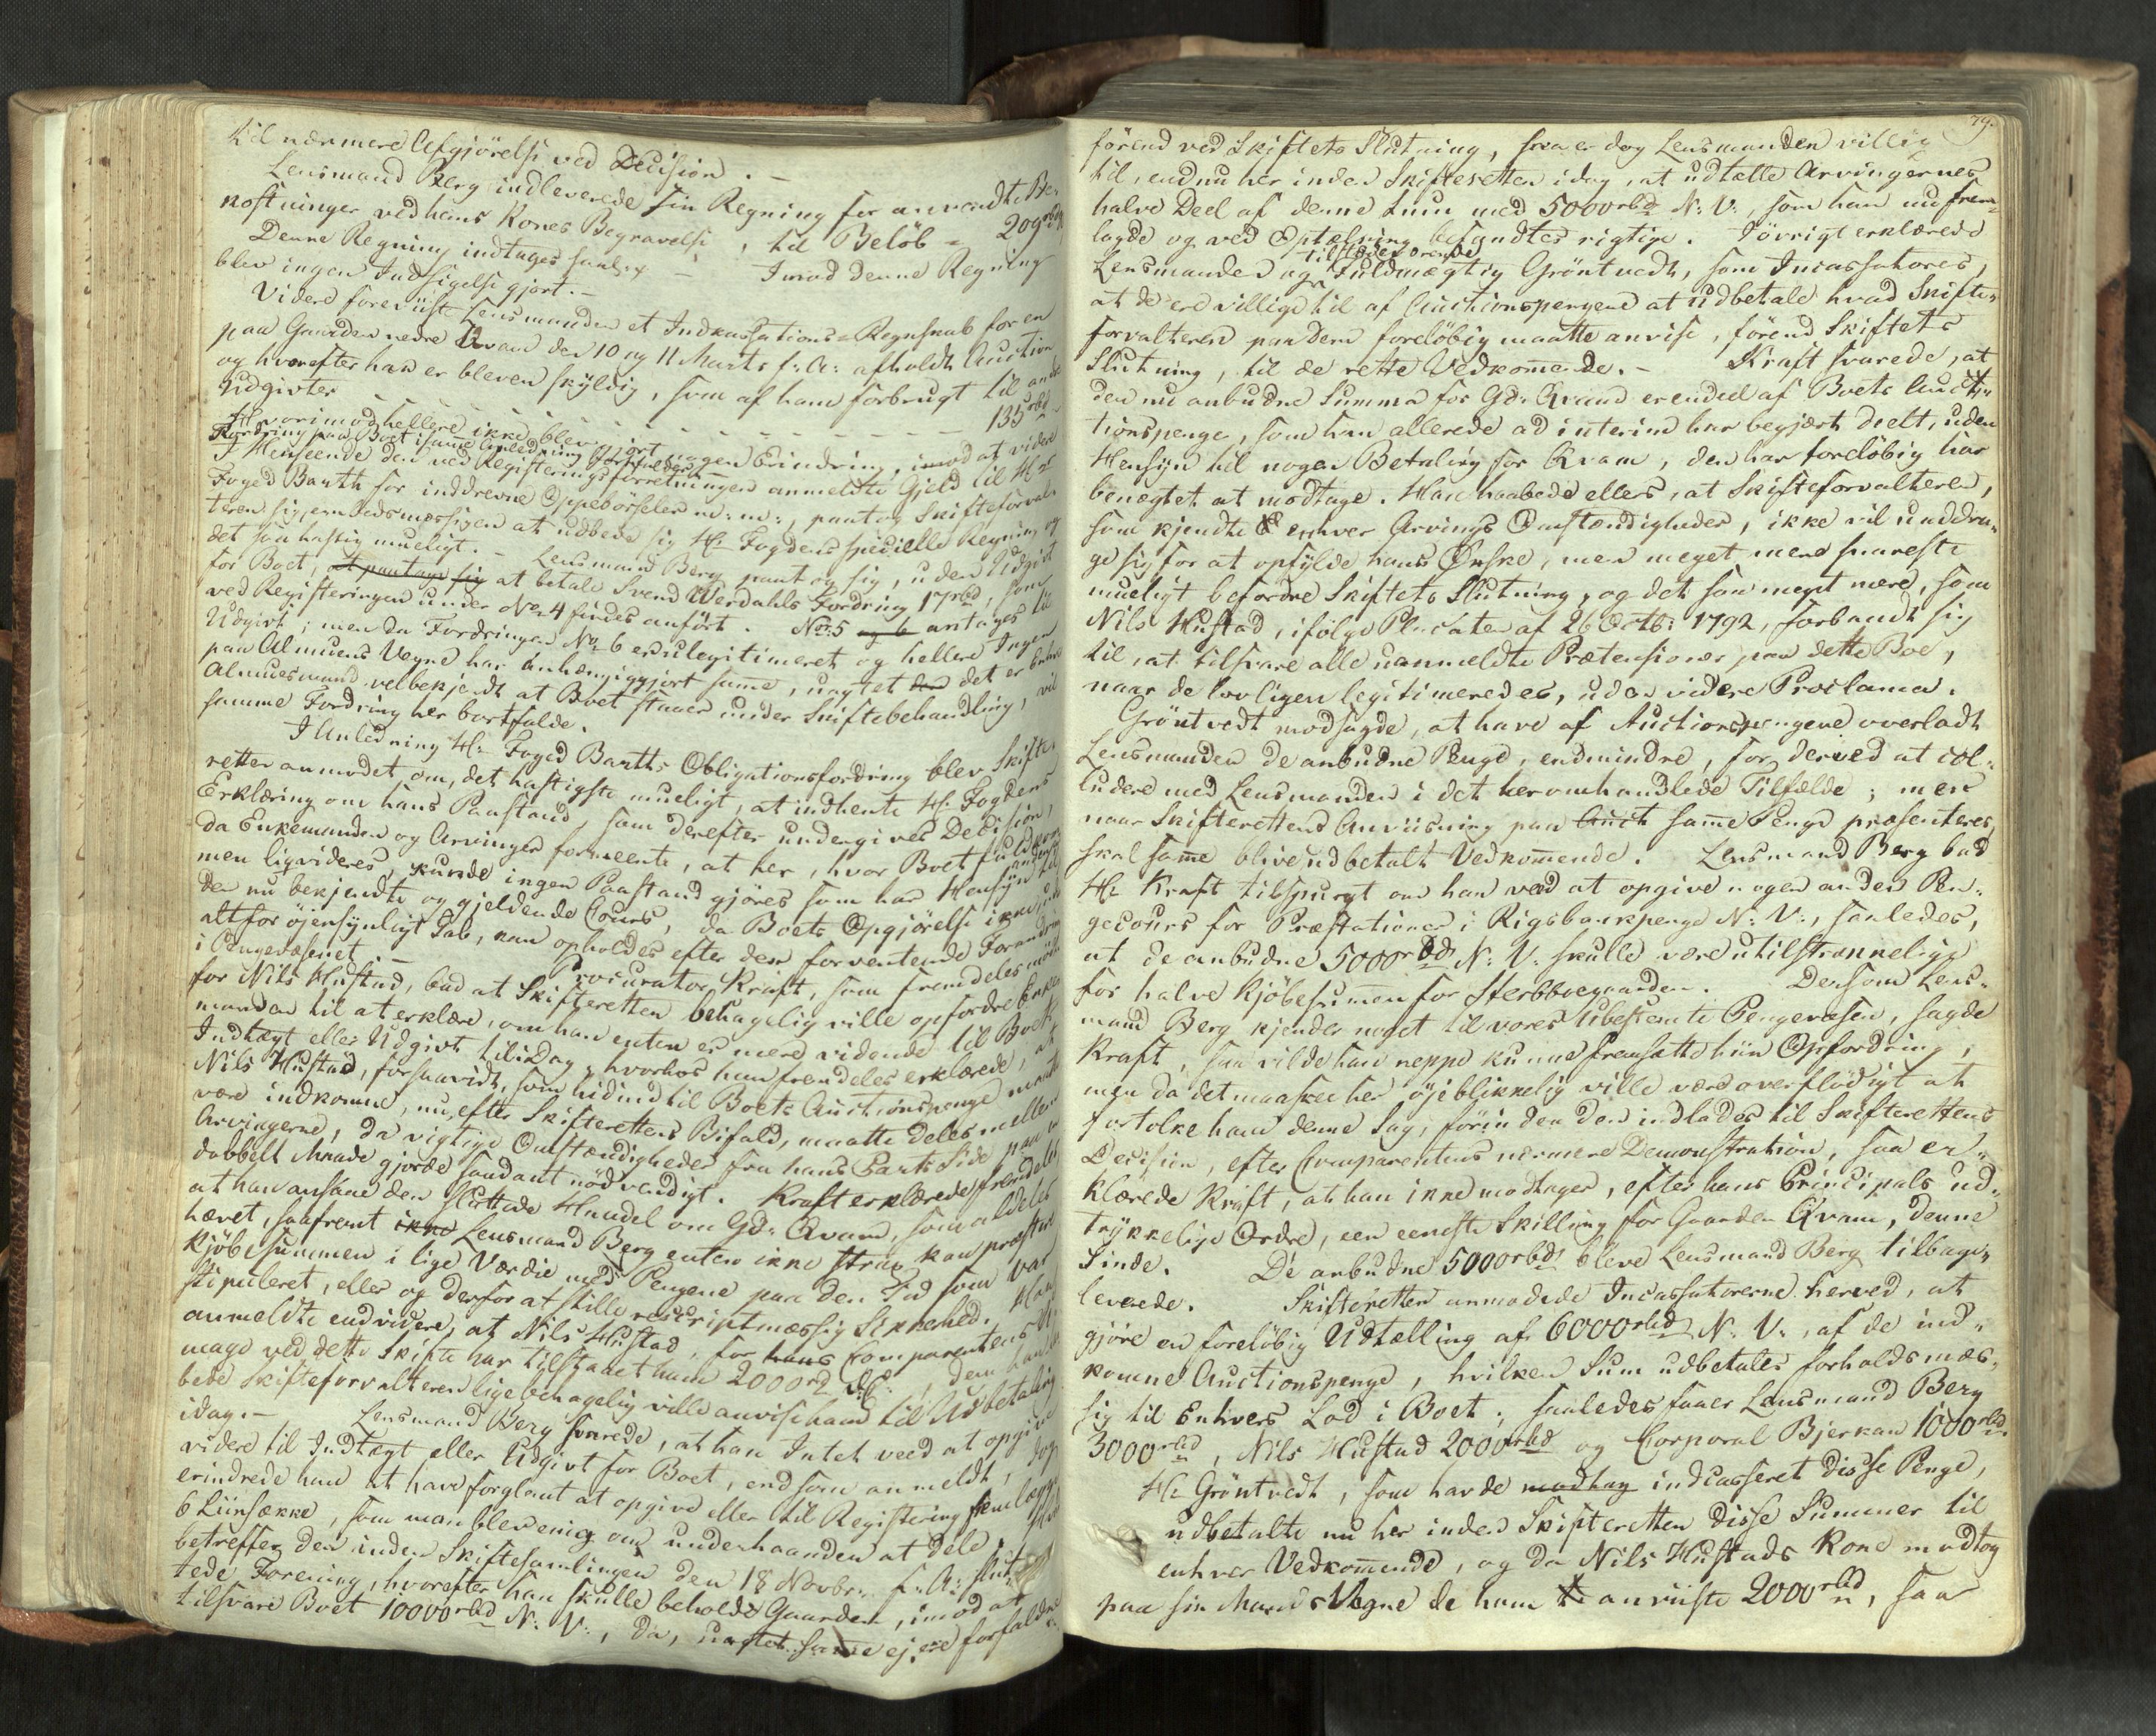 til nærmere Afgjörelse ved Decision. –
Lensmand Berg indleverede sin Regning for anvendte Be-
kostninger ved hans Kones Begravelse, til Belöb = 209 rbd
Denne Regning indtages saal: x – Imod denne Regning
blev ingen Indsigelse gjort. –
Videre foreviiste Lensmanden et Indkassations-Regnskab for en
paa Gaarden nedre Qvam den 10 og 11 Marts f: A: afholdt Auction
og hvorefter han er bleven skyldig, som af ham forbrugt til andre
Udgivter – – – – – – – – – – 135 rbd
Hvorimod hellere ikke blev gjort nogen Erindring, imod at videre
Fordring paa Boet i samme Anledning bortfalder.
I Henseende den ved Registeringsforretningen anmeldte Gjeld til Hr
Foged Barth for inddrevne Oppebörseler m: m:, paatog Skifteforval-
teren sig, embedsmæssigen at udbede sig Hr. Fogdens specielle Regning og
det saa hastig mueligt. – Lensmand Berg paatog sig, uden Udgivt
for Boet, at paatage sig at betale Svend Werdahls Fordring 17 rbd, som
ved Registeringen under No 4 findes anfört. No: 5 og 6 antages til
Udgivt; men da Fordringen No 6 er ulegitimeret og hellere Ingen
paa Almuens Vegne har anhængiggjort samme, uagtet den det er enhver
Almuesmand vel bekjendt at Boet staaer under Skiftebehandling, vil
samme Fordring her bortfalde.
I Anledning Hr. Foged Barths Obligationsfordring blev Skifte-
retten anmodet om, det hastigste mueligt, at indhente Hr. Fogdens
Erklæring om hans Paastand, som derefter undergives Decision,
da Enkemanden og Arvinger formeente, at her, hvor Boet fuldkom-
men ligvideres, kunde ingen Paastand gjöres som har Hensyn til
den nu bekjendte og gjeldende Cours, da Boets Opgjörelse ikke, uden
altfor öjensynligt Tab, kan opholdes efter den forventende Forandring
i Pengevæsenet. – Procurator Kraft, som fremdeles mödte
for Nils Hustad, bad at Skifteretten behagelig ville opfordre Enke-
manden til at erklære, om han enten er mere vidende til Boets
Indtægt eller Udgivt til i Dag, hvorhos han fremdeles erklærede, at
Nils Hustad, forsaavidt, som hidind til Boets Auctionspenge maatte
være indkomne, nu, efter Skifterettens Bifald, maatte deles mellem
Arvingerne, da vigtige Omstændigheder fra hans Parts Side paa en
dobbelt Maade gjorde saadant nödvendigt. Kraft erklærede fremdeles
at han ansaae den sluttede Handel om Gd: Qvam, som aldeles
hævet, saafremt ikke Lensmand Berg enten ikke strax kan præstere
Kjöbesummen i lige Værdie med Pengene paa den Tid som var
stipuleret, eller og derfor at stille rescriptmæssig Sikkerhed. Han
anmeldte endvidere, at Nils Hustad, for hans Comparentens U-
mage ved dette Skifte har tilstaaet ham 200 rd N: V:, dem han
bede Skifteforvalteren ligebehagelig ville anvise ham til Udbetaling
idag. – Lensmand Berg svarede, at han Intet veed at opgive
videre til Indtægt eller Udgivt for Boet, end som anmeldt, dog
erindrede han at have forglemt at opgive eller til Registering fremlægge
6 Liinsække, som man blev enig om underhaanden at dele. Hvad
betreffer den inden Skiftesamlingen den 18 Novbr: f: A: slut-
tede Forening, hvorefter han skulle beholde Gaarden, imod at
tilsvare Boet 10000 rbd N: V:, da, uagtet samme ej ere forfaldne
79.
förend ved Skiftets Slutning, saa er dog Lensmanden villig
til, endnu her inden Skifteretten idag, at udtælle Arvingernes
halve Deel af denne Sum med 5000 rbd N: V:, som han nu frem-
lagde og ved Optælning befandtes rigtige. Iövrigt erklærede
tilstædeværende
Lensmanden og Fuldmægtig Gröntvedt, som Incassatorer,
at de ere villige til af Auctionspengene at udbetale hvad Skifte-
forvalteren paa dem foreløbig maatte anvise, förend Skiftets
Slutning, til de rette Vedkommende. – Kraft svarede, at
den nu anbudne Summa for Gd: Qvam er en deel af Boets Auc-
tionspenge, som han allerede ad interim har begjært deelt, uden
Hensyn til nogen Betaling for Qvam, den har foreløbig har
benægtet at modtage. Han haabede ellers, at Skifteforvalteren,
som kjendte enhver Arvings Omstændigheder, ikke vil unddra-
ge sig for at opfylde hans Ønske, men meget mere snareste
mueligt befordre Skiftets Slutning, og det saa meget mere, som
Nils Hustad, ifölge Placaten af 26 Octb: 1792, forbandt sig
til, at tilsvare alle uanmeldte Prætensioner paa dette Boe,
naar de lovligen legitimeredes, uden videre Proclama.
Gröntvedt modsagde, at have af Auctionspengene overladt
Lensmanden de anbudne Penge, endmindre, for derved at col-
ludere med Lensmanden i det heromhandlede Tilfælde; men
naar Skifterettens Anviisning paa Auct samme Penge præsenteres,
skal samme blive udbetalt Vedkommende. Lensmand Berg bad
Hr. Kraft tilspurgt om han veed at opgive nogen anden Pen-
gecours for Præstationer i Rigsbankpenge N: V:, saaledes,
at de anbudne 5000 rbd N: V: skulle være utilstrækkelige
for halve Kjöbesummen for Sterbboegaarden. Dersom Lens-
mand Berg kjender noget til vores ubestemte Pengevæsen, sagde
Kraft, saa vilde han neppe kunne fremsætte hiin Opfordring;
men da det maaskee her öjeblikkelig ville være overflödigt at
fortolke ham denne Sag, förinden den indlades til Skifterettens
Decision, efter Comparentens nærmere Demonstration, saa er-
klærede Kraft, at han ikke modtager, efter hans Principals ud-
trykkelige Ordre, een eeneste Skilling for Gaarden Qvam, denne
Sinde. De anbudne 5000 rbd bleve Lensmand Berg tilbage-
leverede. Skifteretten anmodede Incassatorerne herved, at
gjöre en foreløbig Udtælling af 6000 rbd N: V:, af de ind-
komne Auctionspenge, hvilken Sum udbetales forholdsmæs-
sig til Enhvers Lod i Boet; saaledes faaer Lensmand Berg
3000 rbd, Nils Hustad 2000 rbd og Corporal Bjerkan 1000 rbd.
Hr. Gröntvedt, som havde modtag indcasseret disse Penge,
udbetalte nu her inden Skifteretten disse Summer til
enhver Vedkommende, og da Nils Hustads Kone modtog
paa sin Mands Vegne de ham anviiste 2000 rbd, saa